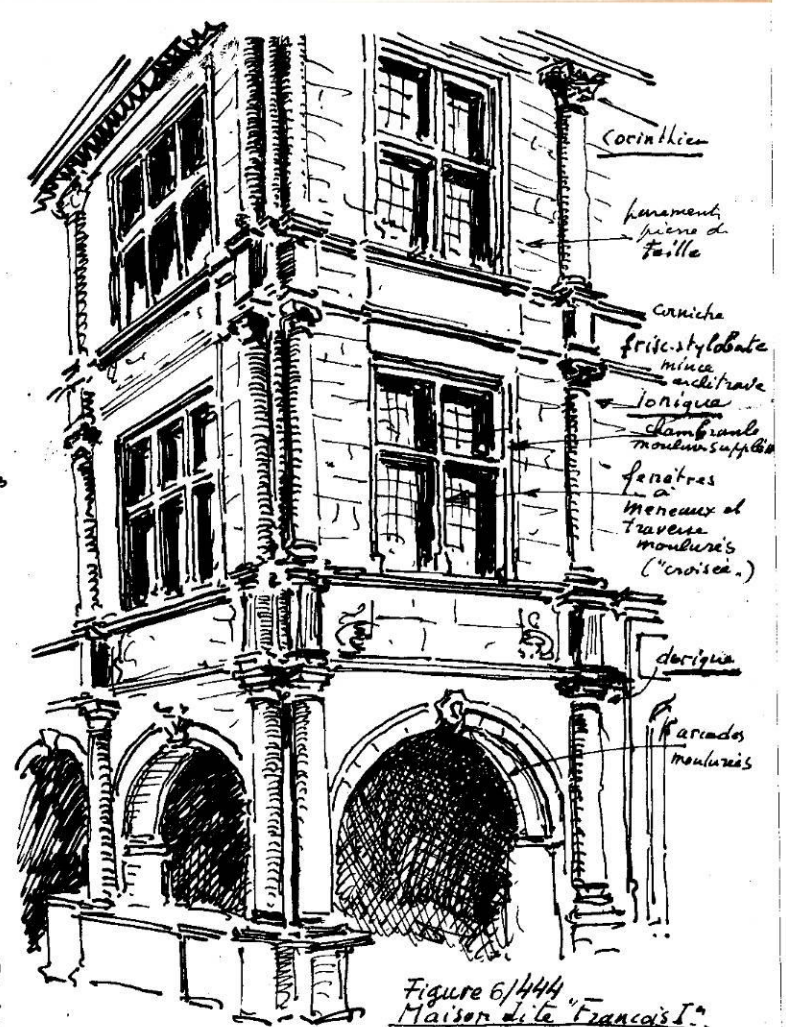 corinthien
parement
pierre d
Taille
corniche
frise-stylobate
mince
architrave
ionique
chambranle
fenêtres
à
meneaux et
traverse
moulurés
("croisée")
dorique
arcades
moulurées
Figure 6/444
Maison dite "François I"